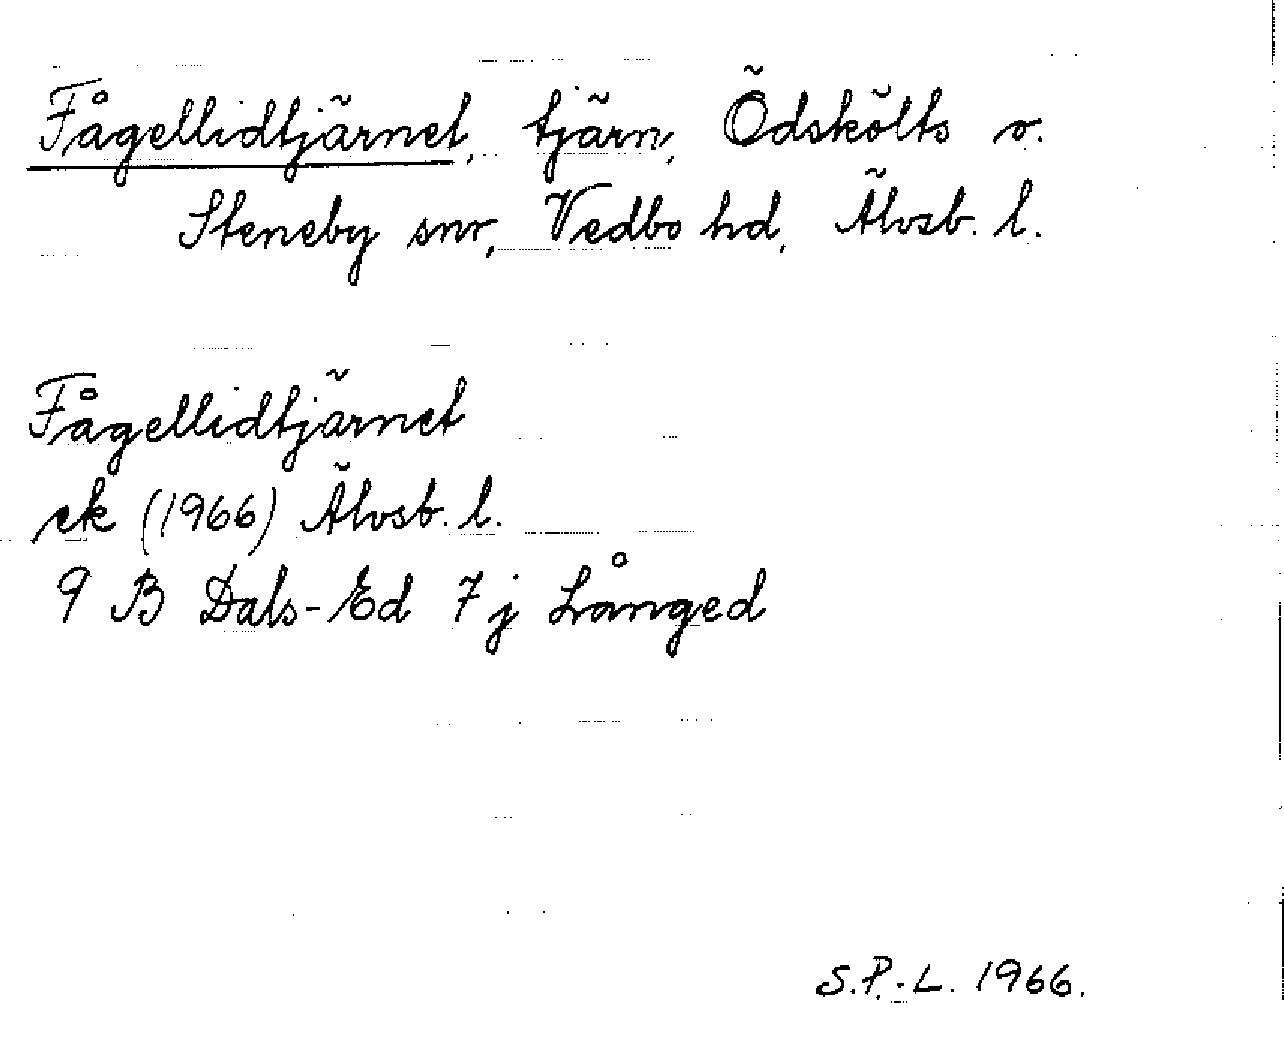 Fågellidtjärnet, tjärn, Ödskölts o.
Steneby snr, Vedbo hd, Älvsb. l.
Fågellidtjärnet
ek (1966) Älvsb. l.
9 B Dals-Ed 7j Långed
S.P.-L. 1966.